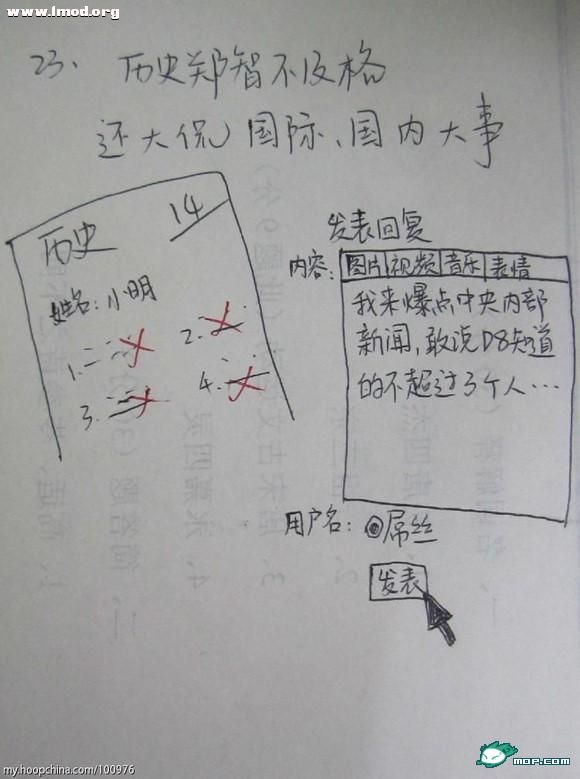 www.lmod.org
23、历史郑智不及格
还大侃国际、国内大事
历史 14
姓名:小明
1.
2.
3.
4.
发表回复
内容:
图片 视频 音乐 表情
我来爆点中央内部
新闻,敢说D8知道
的不超过3个人...
用户名: @屌丝
发表
my.hoopchina.com/100976
mop.com